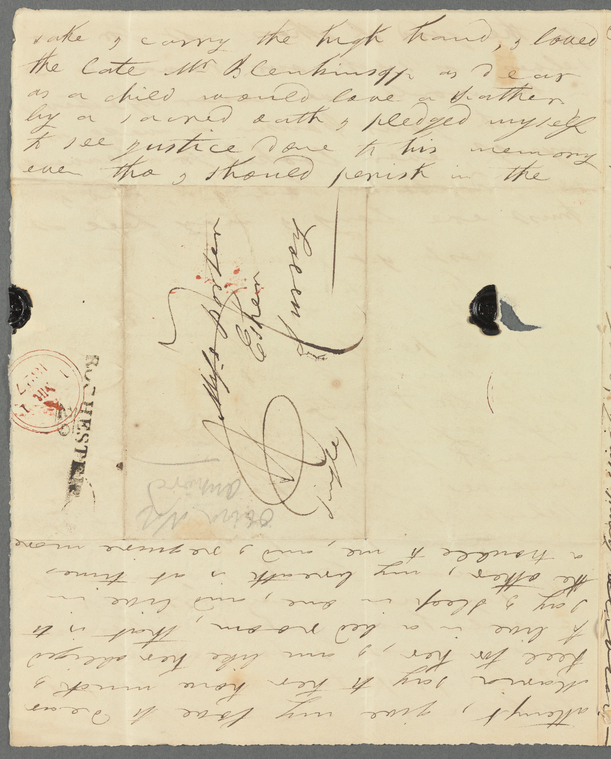 sake I carry the high hand, I loved
the late Mr Blenkinsopp as dear
as a child would love a Father
by a sacred oath I pledged myself
to see justice done to his memory
even tho I should perish in the
attempt, give my love to dear
Maria say to her how much I
feel for her, I am like her obliged
to live in a bed room, that is to
say I sleep in one, and live in
the other, my breath is at times
a trouble to me, and I require more
Miss Porter
Esher
Surrey
Single
ROCHESTER